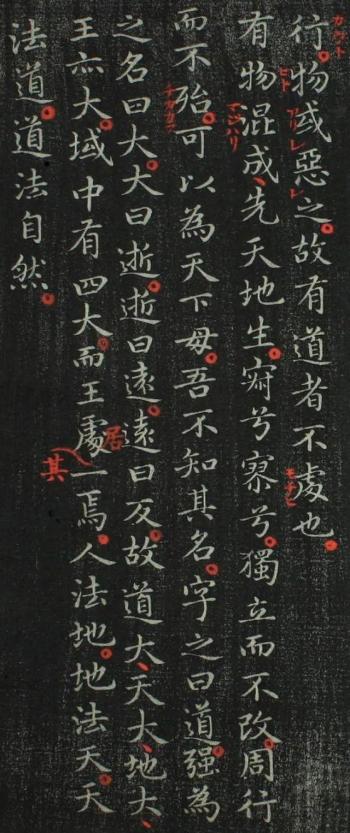 行物或惡之故有道者不處也
有物混成先天地生寂兮寥兮獨立而不改周行
マジハリ
而不殆可以為天下母吾不知其名字之曰道强為
之名曰大大曰逝逝曰遠遠曰反故道大天大地大
王亦大域中有四大而王處一焉人法地地法天天
居
其
法道道法自然